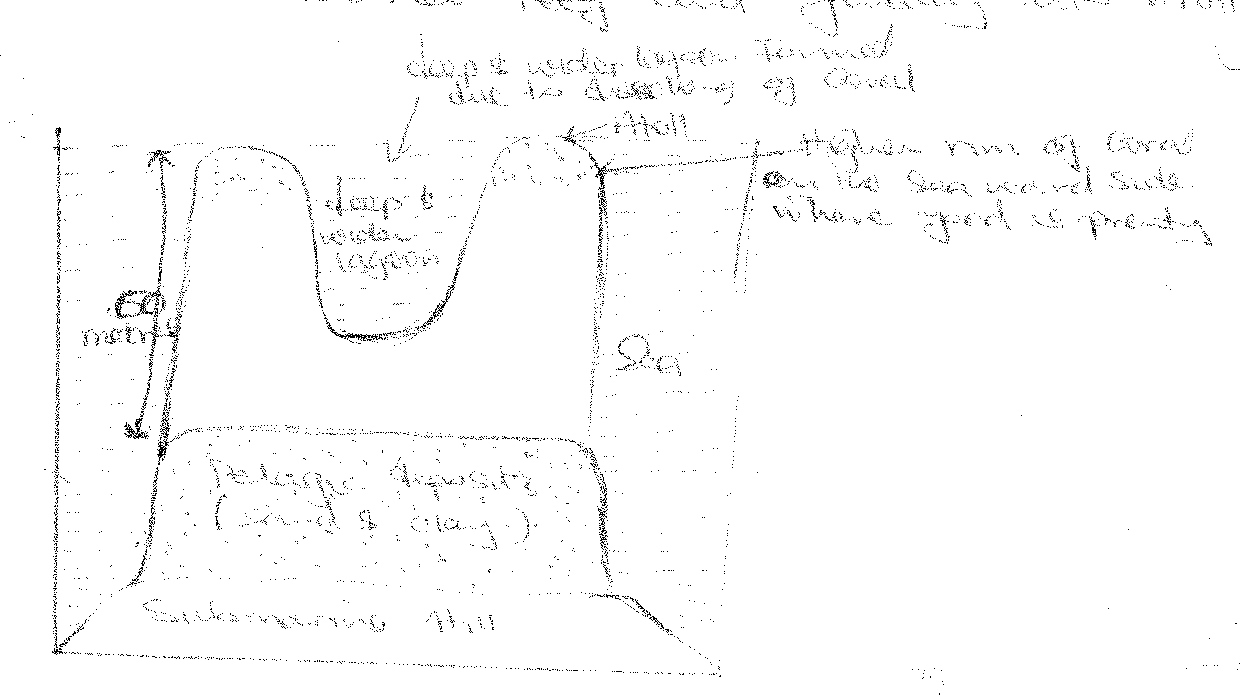 reef and
deep & wider lagoon formed
due to dissolving of Coral
Atoll
Higher rim of Coral
on the Sea ward Side
where food is plenty
deep &
wider
lagoon
60
metres
Sea
Pelagic deposits
(sand & clay)
Submarine Hill